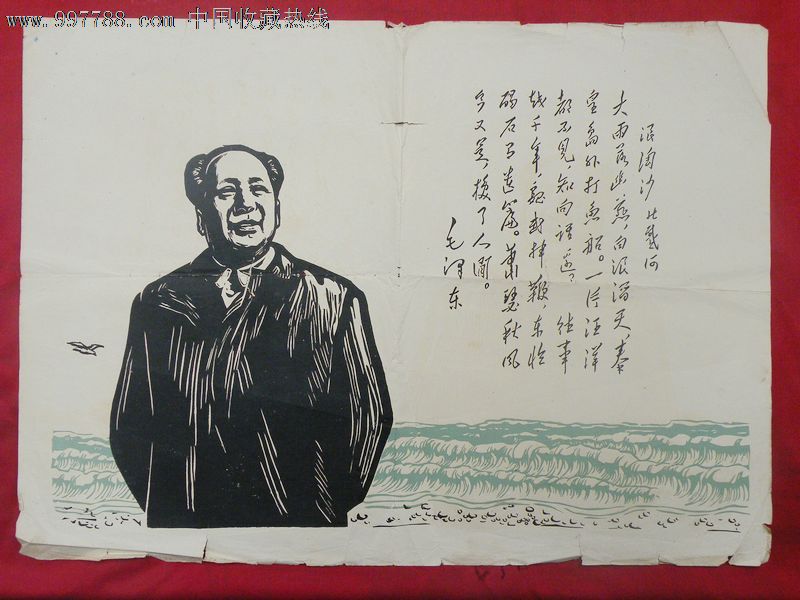 www.997788.com 中国收藏热线
浪淘沙 北戴河
大雨落幽燕，白浪滔天，秦
皇岛外打鱼船。一片汪洋
都不见，知向谁边？往事
越千年，魏武挥鞭，东临
碣石有遗篇。萧瑟秋风
今又是，换了人间。
毛泽东